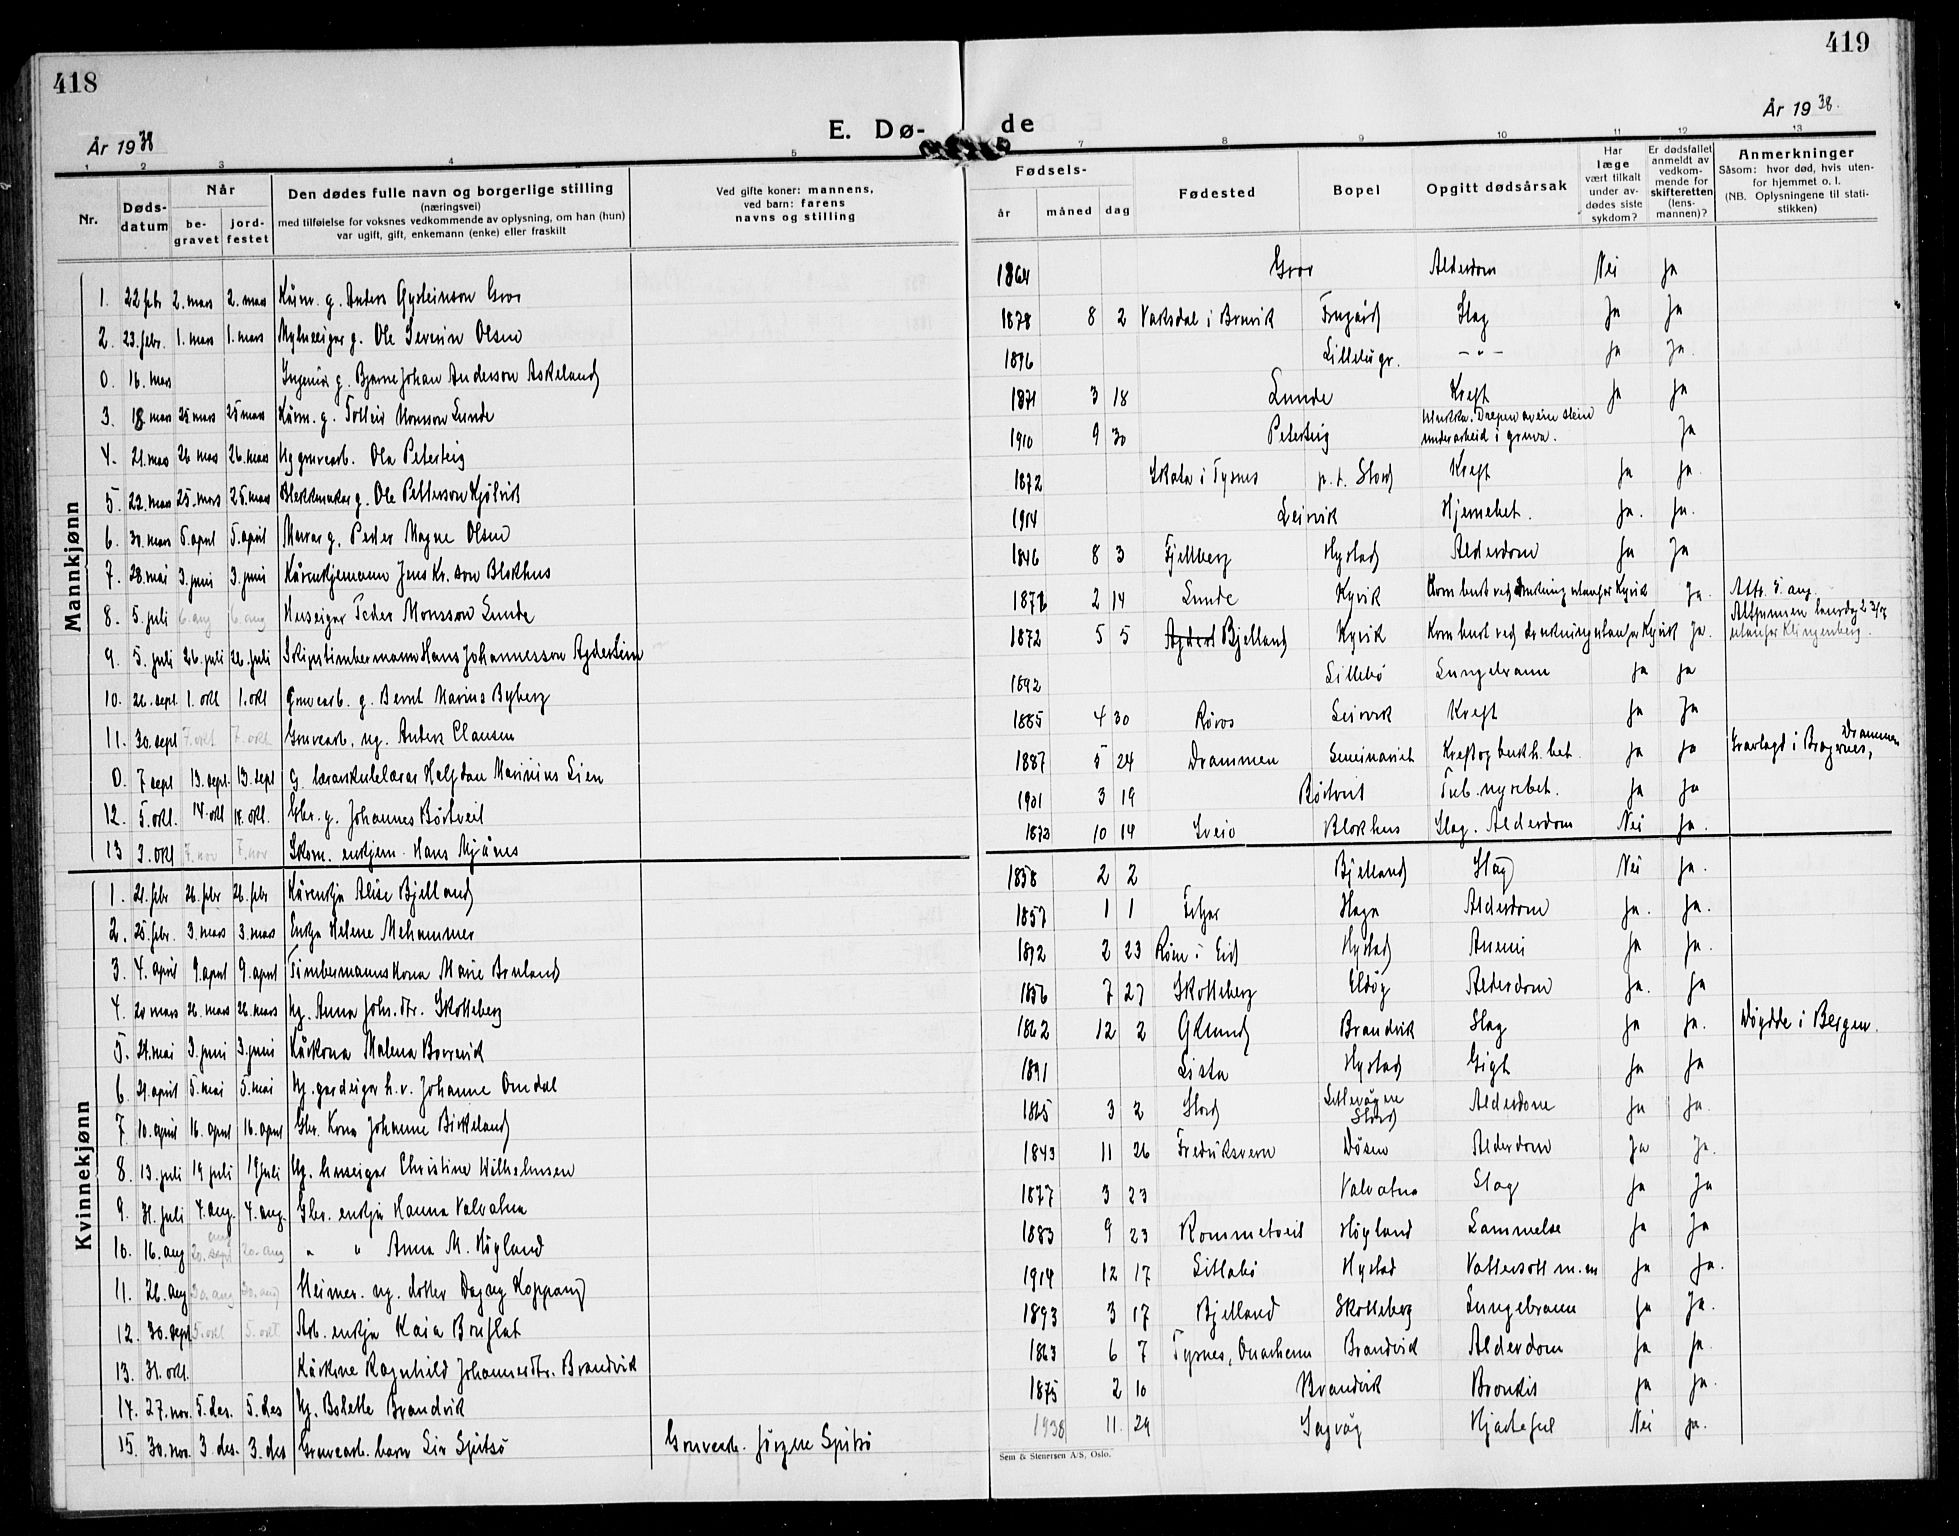 418
År 1938
E. Dø-
1 2 3 4 5
Nr.
Døds-
datum
Når
be-
gravet
jord-
festet
Den dødes fulle navn og borgerlige stilling
(næringsvei)
med tilføielse for voksnes vedkommende av oplysning, om han (hun)
var ugift, gift, enkemann (enke) eller fraskilt
Ved gifte koner: mannens,
ved barn: farens
navns og stilling
Mannkjønn
1. 22 febr 2. mars 2. mars Kårm. g. Anders Gysteinson Gror
2. 23. febr. 1. mars 1. mars Mylneeigar g. Ole Severin Olsen
0. 16. mars Ingeniør g. Bjarne Johan Anderson Askeland
3. 18 mars 25 mars 25 mars Kårm. g. Tolleiv Monsson Lunde
4. 21. mars 26 mars 26. mars Ug gruvearb. Ola Peterteig
5. 22. mars 25. mars 25. mars Blekkmakar g. Ole Petterson Kjølvik
6. 30. mars 5. april 5. april Murar g. Peder Magne Olsen
7. 28. mai 3. juni 3. juni Kårenkjemann Jens Kr. son Blokhus
8. 5. juli 6. aug 6 aug Huseigar Peder Monsson Lunde
9. 5. juli 26. juli 26. juli Skipstimbermann Hans Johannesson Agdestein
10. 26. sept. 1. okt 1. okt Gruvearb. g. Bernt Marius Byberg
11. 30. sept 7. okt 7. okt Gruvearb. ug. Anders Clausen
0. 7 sept 13. sept. 13. sept G. lærarskulelærar Halfdan Marinius Lien
12. 5. okt. 14. okt 14. okt. Gbr. g. Johannes Børtveit
13 3. okt 7. nov 7. nov Skom. enkjem. Hans Mjånes
Kvinnekjønn
1. 21. febr 26. febr 26. febr Kårenkja Alise Bjelland
2. 25. febr. 3. mars 3. mars Enkja Helene Mehammer
3. 4. april 9. april 9. april Timbermannskona Marie Bruland
4. 20 mars 26. mars 26. mars Ug. Anna Johs. dtr. Skotteberg
5. 24. mai 3. juni 3. juni Kårkona Malena Borrevik
6. 29. april 5. mai 5. mai Ug. gardeigar h.v. Johanne Omdal
7. 10. april 16. april 16. april Gbr. Kona Johanne Birkeland
8. 13. juli 19 juli 19 juli Ug. huseigar Christine Wilhelmsen
9. 31. juli 4. aug. 4. aug. Gbr. enkja Hanna Valvatna
10. 16. aug 20. sept aug 20. aug " " Anna M. Høgland
11. 26. aug 30. aug 30. aug Heimev. ug. dotter Dagny Koppang
12. 30. sept 5. okt 5. okt Arb. enkja Kaia Bruflat
13. 31. okt. Kårkone Ragnhild Johannesdtr. Brandvik
14. 27. nov. 5. des. 5. des Ug. Bolette Brandvik
15. 30. nov. 3. des. 3. des Gruvearb. barn Liv Spitsø Gruvearb. Jørgen Spitsø
419
År 1938.
de
7 8 9 10 11 12 13
Fødsels-
år måned dag
Fødested
Bopel
Opgitt dødsårsak
Har
læge
vært tilkalt
under av-
dødes siste
sykdom?
Er dødsfallet
anmeldt av
vedkom-
mende for
skifteretten
(lens-
mannen)?
Anmerkninger
Såsom: hvor død, hvis uten-
for hjemmet o. l.
(NB. Oplysningene til stati-
stikken)
1864 Gror Alderdom Nei Ja
1878 8 2 Vaksdal i Bruvik Frugård Slag Ja Ja
1876 Lillebø gr. — " — Ja Ja.
1871 3 18 Lunde Kreft Ja Ja
1910 9 30 Peterteig Ulukka. Drepen av ein stein
under arbeid i gruva. Ja
1872 Skala i Tysnes p.t. Stord Kreft Ja Ja.
1914 Leirvik Hjernebet. Ja. Ja.
1846 8 3 Fjellberg Hystad Alderdom Ja Ja
1871 2 14 Lunde Kyvik Kom burt ved drukning utanfor Kyvik Ja. Attf. 5. aug.
1872 5 5 Agdest Bjelland Kyvik Kom burt ved drukning utanfor Kyvik Ja. Attfunnen laurdag 23/7
utanfor Klingenberg.
1892 Lillebø Lungebrann Ja Ja
1885 4 30 Røros Leirvik Kreft Ja Ja
1887 5 24 Drammen Seminariet Kreft og bukh. bet. Ja Ja Gravlagd i Bragernes, Drammen
1901 3 19 Børtveit Tub. nyrebet. Ja Ja
1873 10 14 Sveio Blokhus Slag. Alderdom Nei Ja.
1858 2 2 Bjelland Slag Nei Ja.
1857 1 1 Fitjar Haga Alderdom Ja. Ja.
1872 2 23 Røm i Eid Hystad Anemi Ja Ja.
1856 7 27 Skotteberg Eldøy Alderdom Ja. Ja
1862 12 2 Eklund Brandvik Slag Ja Ja. Døydde i Bergen.
1891 Lista Hystad Gigt Ja Ja
1865 3 2 Stord Litlevågen
Stord Alderdom Ja Ja.
1843 11 26 Fredriksvern Døsen Alderdom Ja Ja.
1877 3 23 Valvatna Slag Ja Ja
1883 9 23 Rommetveit Høgland Lammelse Ja Ja
1914 12 17 Litlabø Hystad Vattersott m. m Ja Ja.
1893 3 17 Bjelland Skotteberg Lungebrann Ja Ja.
1863 6 7 Tysnes, Onarheim Brandvik Alderdom Ja Ja.
1875 2 10 Brandvik Bronkit Ja Ja.
1938 11. 29 Sagvåg Hjartefeil Nei Ja.
Sem & Stenersen A/S, Oslo.